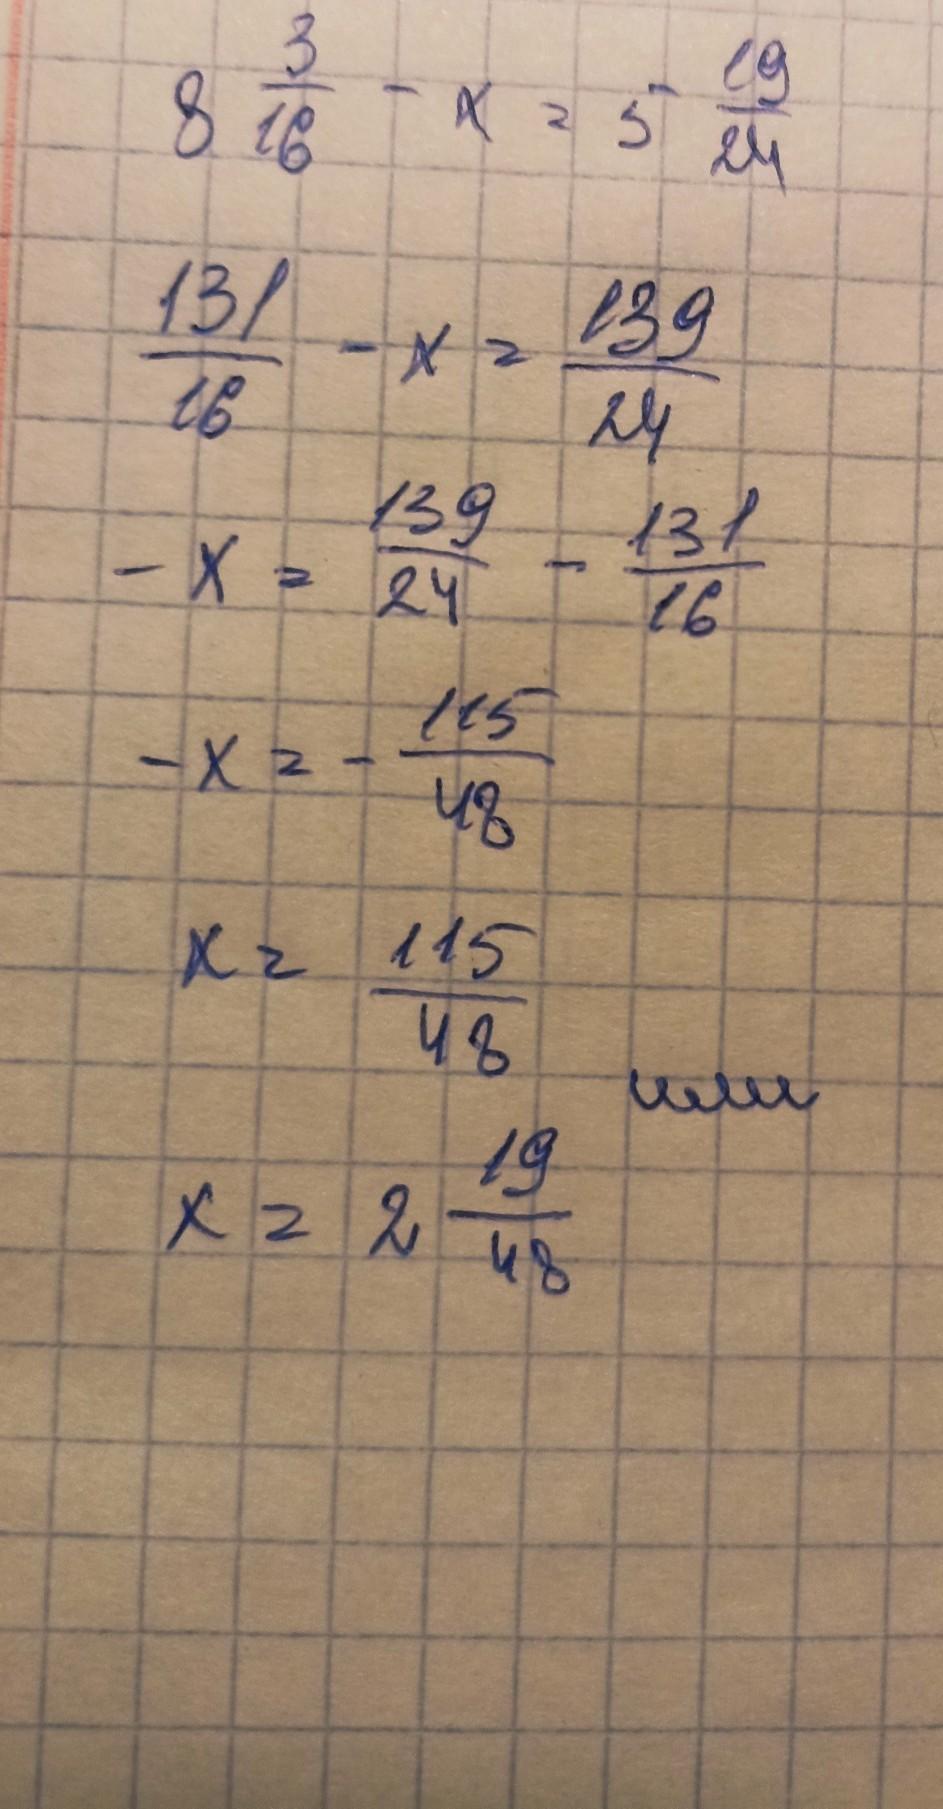 8 3/16 - x = 5 19/24
131/16 - x = 139/24
- x = 139/24 - 131/16
- x = - 115/48
x = 115/48
или
x = 2 19/48